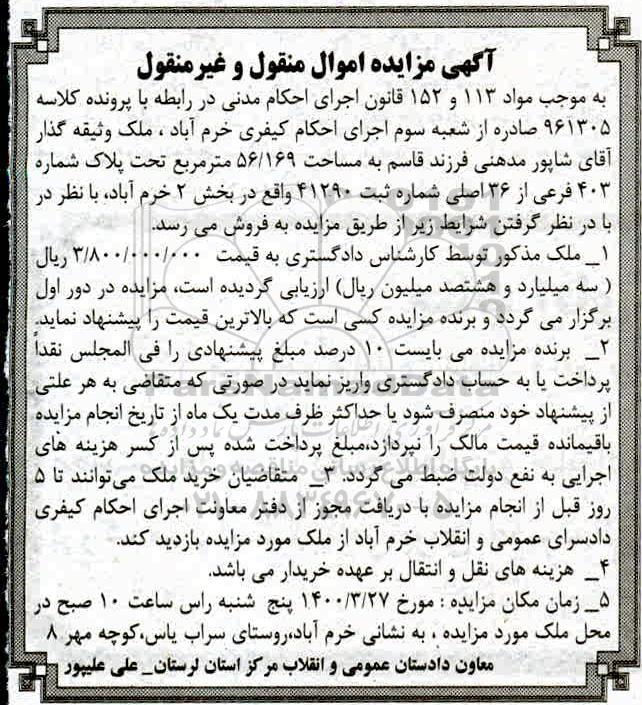 آگهی مزایده اموال منقول و غیرمنقول
به موجب مواد ۱۱۳ و ۱۵۲ قانون اجرای احکام مدنی در رابطه با پرونده کلاسه
۹۶۱۳۰۵ صادره از شعبه سوم اجرای احکام کیفری خرم آباد ، ملک وثیقه گذار
آقای شاپور مدهنی فرزند قاسم به مساحت ۵۶/۱۶۹ مترمربع تحت پلاک شماره
۴۰۳ فرعی از ۳۶ اصلی شماره ثبت ۴۱۲۹۰ واقع در بخش ۲ خرم آباد، با نظر در
با در نظر گرفتن شرایط زیر از طریق مزایده به فروش می رسد.
۱_ ملک مذکور توسط کارشناس دادگستری به قیمت ۳/۸۰۰/۰۰۰/۰۰۰ ریال
( سه میلیارد و هشتصد میلیون ریال) ارزیابی گردیده است، مزایده در دور اول
برگزار می گردد و برنده مزایده کسی است که بالاترین قیمت را پیشنهاد نماید.
۲_ برنده مزایده می بایست ۱۰ درصد مبلغ پیشنهادی را فی المجلس نقداً
پرداخت یا به حساب دادگستری واریز نماید در صورتی که متقاضی به هر علتی
از پیشنهاد خود منصرف شود یا حداکثر ظرف مدت یک ماه از تاریخ انجام مزایده
باقیمانده قیمت مالک را نپردازد،مبلغ پرداخت شده پس از کسر هزینه های
اجرایی به نفع دولت ضبط می گردد. ۳_ متقاضیان خرید ملک می‌توانند تا ۵
روز قبل از انجام مزایده با دریافت مجوز از دفتر معاونت اجرای احکام کیفری
دادسرای عمومی و انقلاب خرم آباد از ملک مورد مزایده بازدید کند.
۴_ هزینه های نقل و انتقال بر عهده خریدار می باشد.
۵_ زمان مکان مزایده : مورخ ۱۴۰۰/۳/۲۷ پنج شنبه راس ساعت ۱۰ صبح در
محل ملک مورد مزایده ، به نشانی خرم آباد،روستای سراب یاس،کوچه مهر ۸
معاون دادستان عمومی و انقلاب مرکز استان لرستان_ علی علیپور